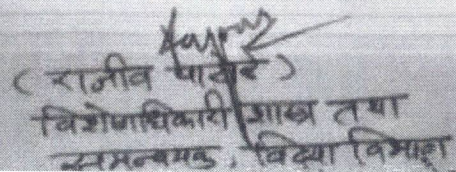 ( राजीव पाण्डे )
विशेषाधिकारी शास्त्र तथा
समन्वयक, विद्या विभाग